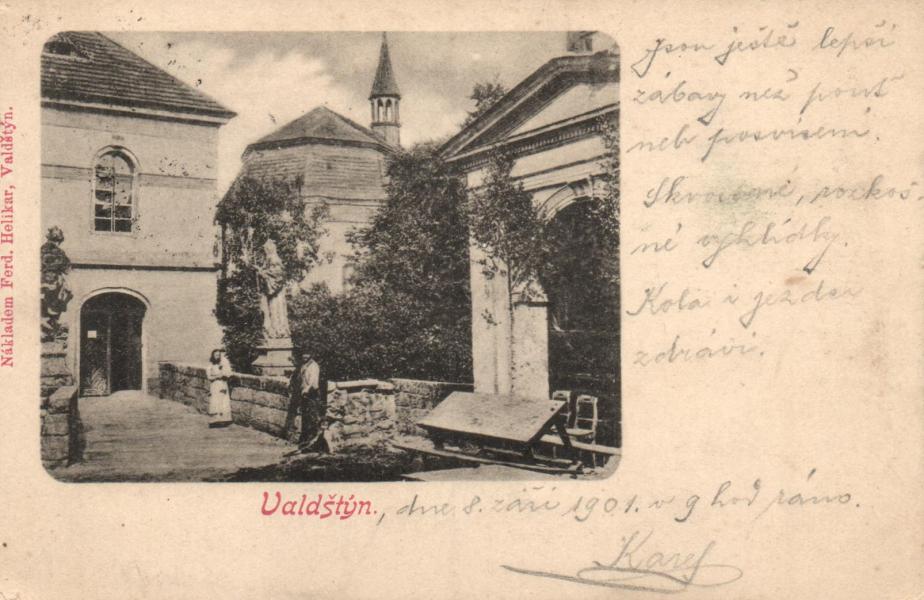 Nákladem Ferd. Helikar, Valdštýn.
Jsou ještě lepší
zábavy než pouť
neb posvícení.
Skvostné, rozkoš
né vyhlídky.
Kola i jezdci
zdrávi.
Valdštýn., dne 8. září 1901. v 9 hod ráno.
Karel